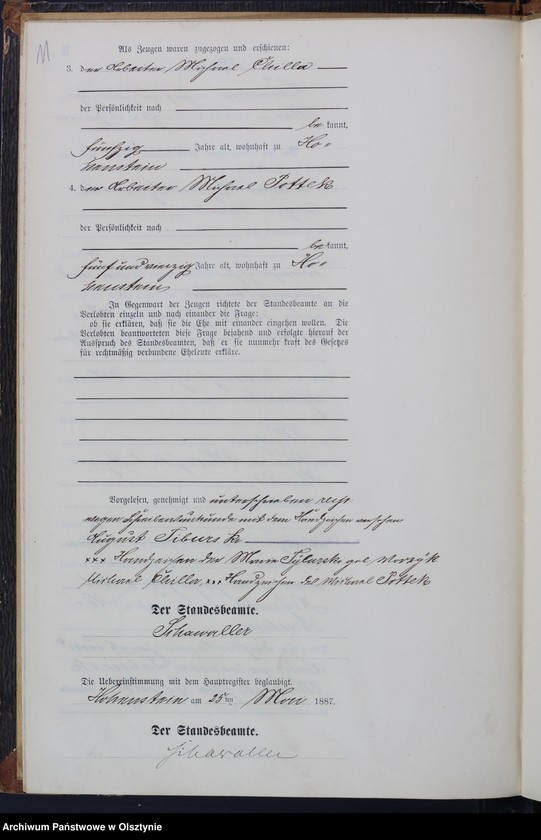 Als Zeugen waren zugezogen und erschienen:
3. der Arbeiter Michael Chilla
der Persönlichkeit nach
be kannt,
fünfzig Jahre alt, wohnhaft zu Ho-
henstein
4. der Arbeiter Michael Pottek
der Persönlichkeit nach
be kannt,
fünf und vierzig Jahre alt, wohnhaft zu Ho-
henstein
In Gegenwart der Zeugen richtete der Standesbeamte an die
Verlobten einzeln und nach einander die Frage:
ob sie erklären, daß sie die Ehe mit einander eingehen wollen. Die
Verlobten beantworteten diese Frage bejahend und erfolgte hierauf der
Ausspruch des Standesbeamten, daß er sie nunmehr kraft des Gesetzes
für rechtmäßig verbundene Eheleute erkläre.
Vorgelesen, genehmigt und unterschrieben resp
wegen Schreibensunkunde mit dem Handzeichen versehen
August Tiburski
xxx Handzeichen der Marie geb
Michael Chilla, xxx Handzeichen des Michael Pottek
Der Standesbeamte.
Schawaller
Die Uebereinstimmung mit dem Hauptregister beglaubigt.
Hohenstein am 25ten Mai 1887.
Der Standesbeamte.
Schawaller
Archiwum Państwowe w Olsztynie